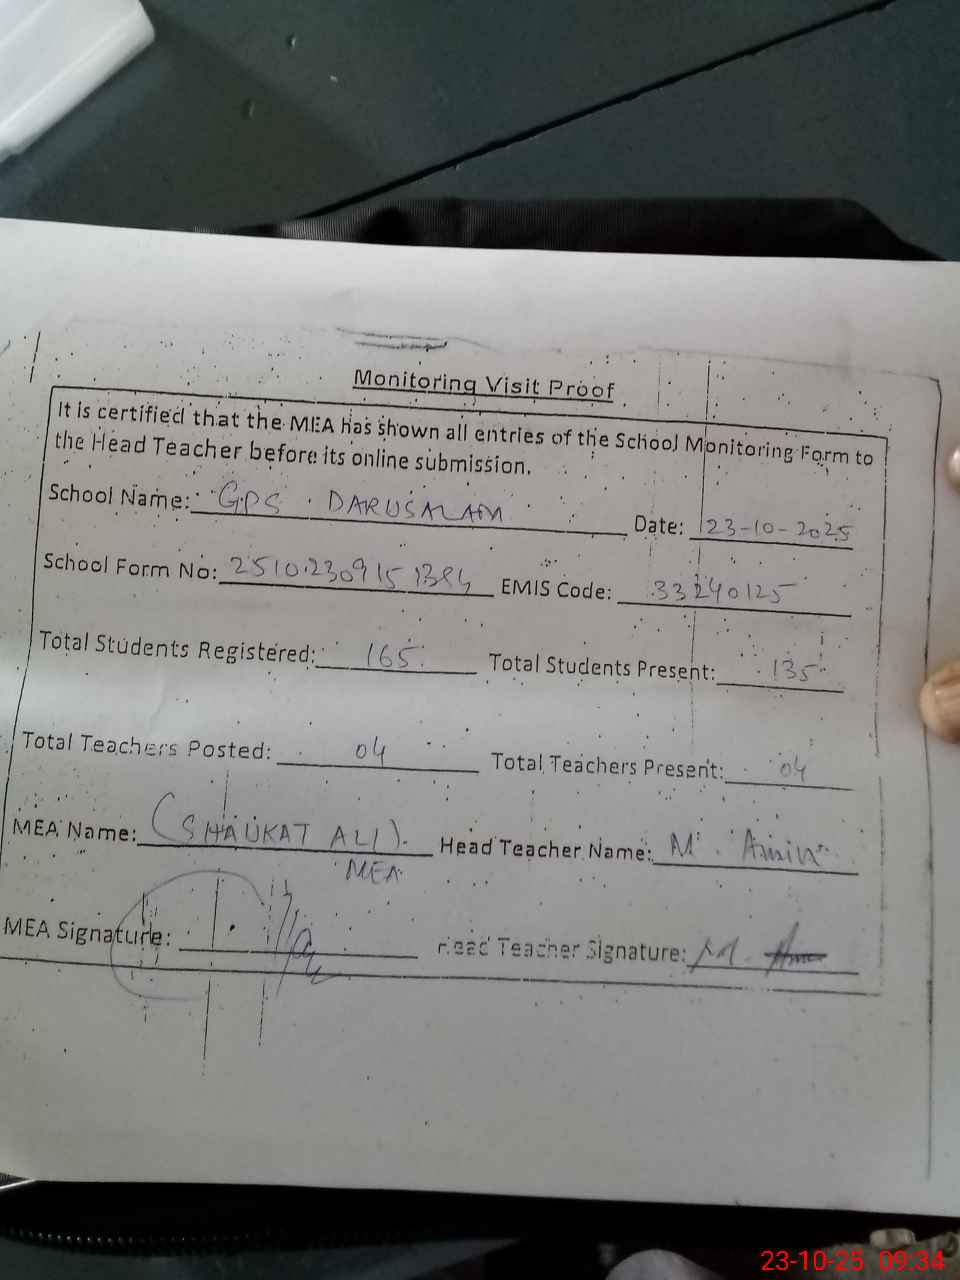 Monitoring Visit Proof
It is certified that the MEA has shown all entries of the School Monitoring Form to
the Head Teacher before its online submission.
School Name: GPS. DARUSALAM Date: 23-10-2025
School Form No: 25102309151384 EMIS Code: 33240125
Total Students Registered: 165 Total Students Present: 135
Total Teachers Posted: 04 Total Teachers Present: 04
MEA Name: (SHAUKAT ALI) Head Teacher Name: M. Amin
MEA
MEA Signature: Head Teacher Signature: M.
23-10-25 09:34